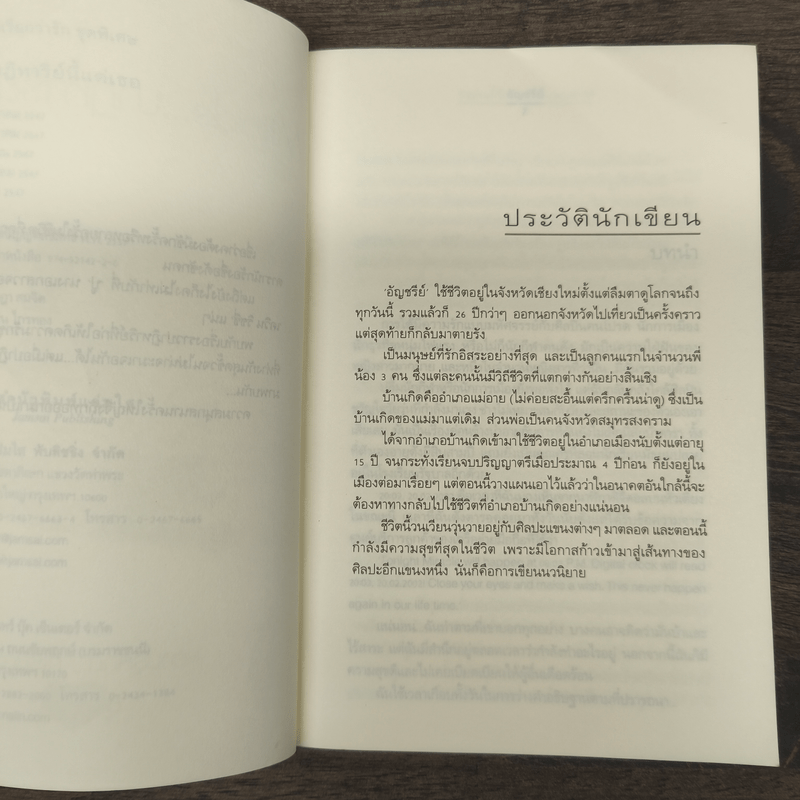 ประวัตินักเขียน
'อัญชรีย์' ใช้ชีวิตอยู่ในจังหวัดเชียงใหม่ตั้งแต่ลืมตาดูโลกจนถึง
ทุกวันนี้ รวมแล้วก็ 26 ปีกว่าๆ ออกนอกจังหวัดไปเที่ยวเป็นครั้งคราว
แต่สุดท้ายก็กลับมาตายรัง
เป็นมนุษย์ที่รักอิสระอย่างที่สุด และเป็นลูกคนแรกในจำนวนพี่
น้อง 3 คน ซึ่งแต่ละคนนั้นมีวิถีชีวิตที่แตกต่างกันอย่างสิ้นเชิง
บ้านเกิดคืออำเภอแม่อาย (ไม่ค่อยสะอื้นแต่ครึกครื้นน่าดู) ซึ่งเป็น
บ้านเกิดของแม่มาแต่เดิม ส่วนพ่อเป็นคนจังหวัดสมุทรสงคราม
ได้จากอำเภอบ้านเกิดเข้ามาใช้ชีวิตอยู่ในอำเภอเมืองนับตั้งแต่อายุ
15 ปี จนกระทั่งเรียนจบปริญญาตรีเมื่อประมาณ 4 ปีก่อน ก็ยังอยู่ใน
เมืองต่อมาเรื่อยๆ แต่ตอนนี้วางแผนเอาไว้แล้วว่าในอนาคตอันใกล้นี้จะ
ต้องหาทางกลับไปใช้ชีวิตที่อำเภอบ้านเกิดอย่างแน่นอน
ชีวิตนี้วนเวียนวุ่นวายอยู่กับศิลปะแขนงต่างๆ มาตลอด และตอนนี้
กำลังมีความสุขที่สุดในชีวิต เพราะมีโอกาสก้าวเข้ามาสู่เส้นทางของ
ศิลปะอีกแขนงหนึ่ง นั่นก็คือการเขียนนวนิยาย